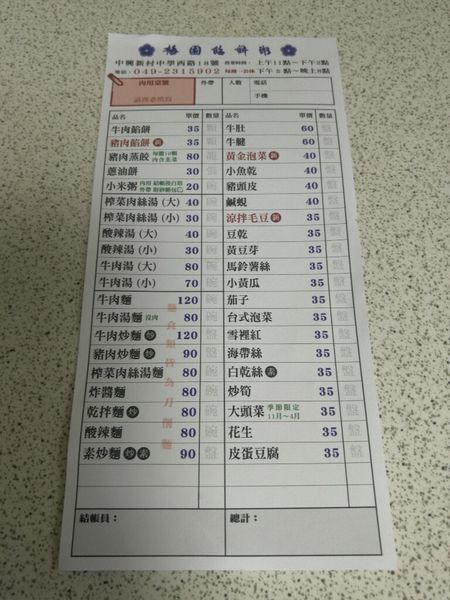 梅園餡餅粥
中興新村中學西路18號 營業時間： 上午11點～下午2點
電話：049-2315902 每週一公休 下午5點～晚上8點
內用桌號 外帶 人數 電話
請務必填寫 手機
品名 單價 數量 品名 單價 數量
牛肉餡餅 35 牛肚 60
豬肉餡餅 35 牛腱 60
豬肉蒸餃 每籠10顆 內含韭菜 80 籠 黃金泡菜 40
蔥油餅 30 小魚乾 40
小米粥 20 碗 豬頭皮 40
榨菜肉絲湯(大) 40 碗 鹹蜆 40
榨菜肉絲湯(小) 30 碗 涼拌毛豆 35 盤
酸辣湯(大) 40 碗 豆乾 35 盤
酸辣湯(小) 30 碗 黃豆芽 35 盤
牛肉湯(大) 80 碗 馬鈴薯絲 35 盤
牛肉湯(小) 70 碗 小黃瓜 35 盤
牛肉麵 120 碗 茄子 35 盤
牛肉湯麵 沒肉 80 碗 台式泡菜 35 盤
牛肉炒麵 炒 120 盤 雪裡紅 35 盤
豬肉炒麵 炒 90 盤 海帶絲 35 盤
榨菜肉絲湯麵 80 碗 白乾絲 素 35 盤
炸醬麵 80 碗 炒筍 35 盤
乾拌麵 炒 80 碗 大頭菜 季節限定 11月～4月 35 盤
酸辣麵 80 碗 花生 35 盤
素炒麵 炒 素 90 盤 皮蛋豆腐 35 盤
麵食類皆為刀削麵
結帳員： 總計：